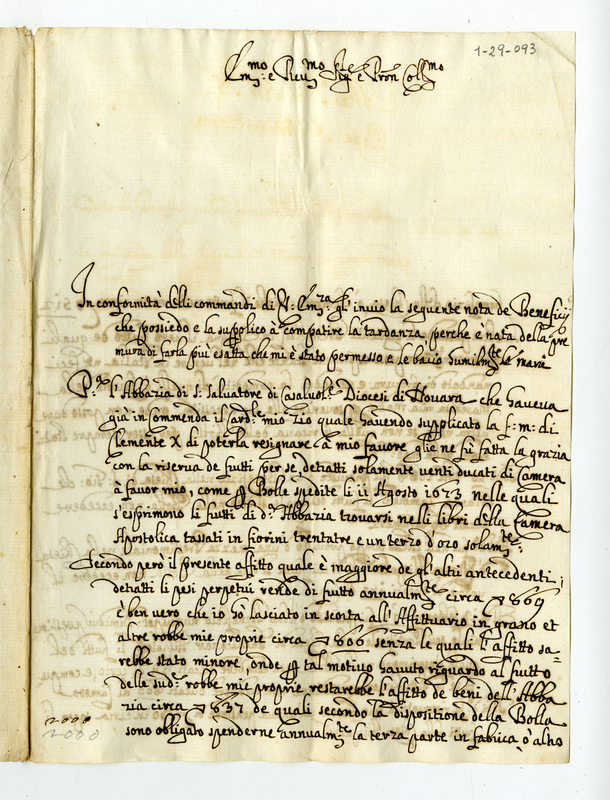 1-29-093
Em:mo e Rev:mo Sig:re e Pron Coll:mo
In conformità delli commandi di V: Em:za gl'invio la seguente nota de Beneficij
che possiedo e la supplico à compatire la tardanza perche è nata della pre
mura di farla più esatta che mi è stato permesso e le bacio humilm:te le mani
P:a l'Abbazia di S: Salvatore di Casaluol: Diocesi di Novara che haveva
già in Commenda il Card:le mio Zio quale havendo supplicato la f: m: di
Clemente X di poterla resignare à mio favore glie ne fù fatta la grazia
con la riserva de frutti per se, detratti solamente venti ducati di Camera
à favor mio, come p Bolle spedite li 11 Agosto 1673 nelle quali
s'esprimono li frutti di d:a Abbazia trovarsi nelli libri della Camera
Apostolica tassati in fiorini trentatre e un terzo d'oro solam:te:
Secondo però il presente affitto quale è maggiore de gl'altri antecedenti,
detratti li pesi perpetui rende di frutto annualm:te circa 869
è ben vero che io hò lasciato in scorta all'Affittuario in grano et
altre robbe mie proprie circa 866 senza le quali l'affitto sa=
rebbe stato minore, onde p tal motivo havuto riguardo al frutto
delle sud:e robbe mie proprie restarebbe l'affitto de beni dell'Abba
zia circa 837 de quali secondo la dispositione della Bolla
sono obligato spenderne annualm:te la terza parte in fabrica, ò altro
2000
2000